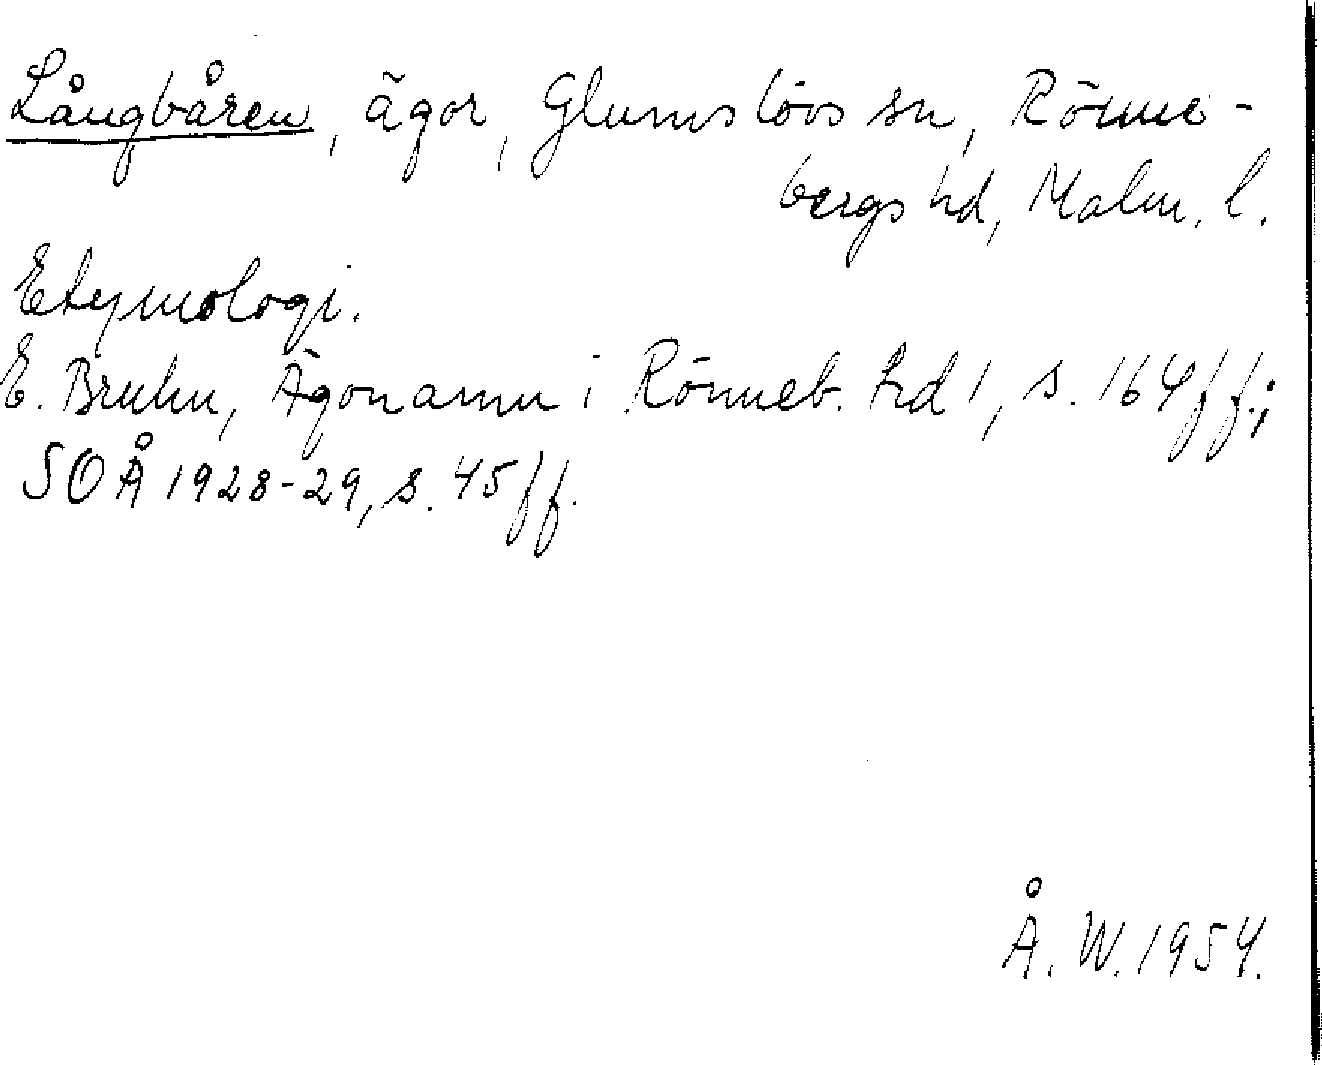 Långbåren, ägor, Glumslövs sn, Rönne-
bergs hd, Malm. l.
Etymologi.
E. Bruhn, Ägonamn i Rönneb. hd 1, s. 164 ff.;
SOÅ 1928-29, s. 45 ff.
Å. W. 1954.